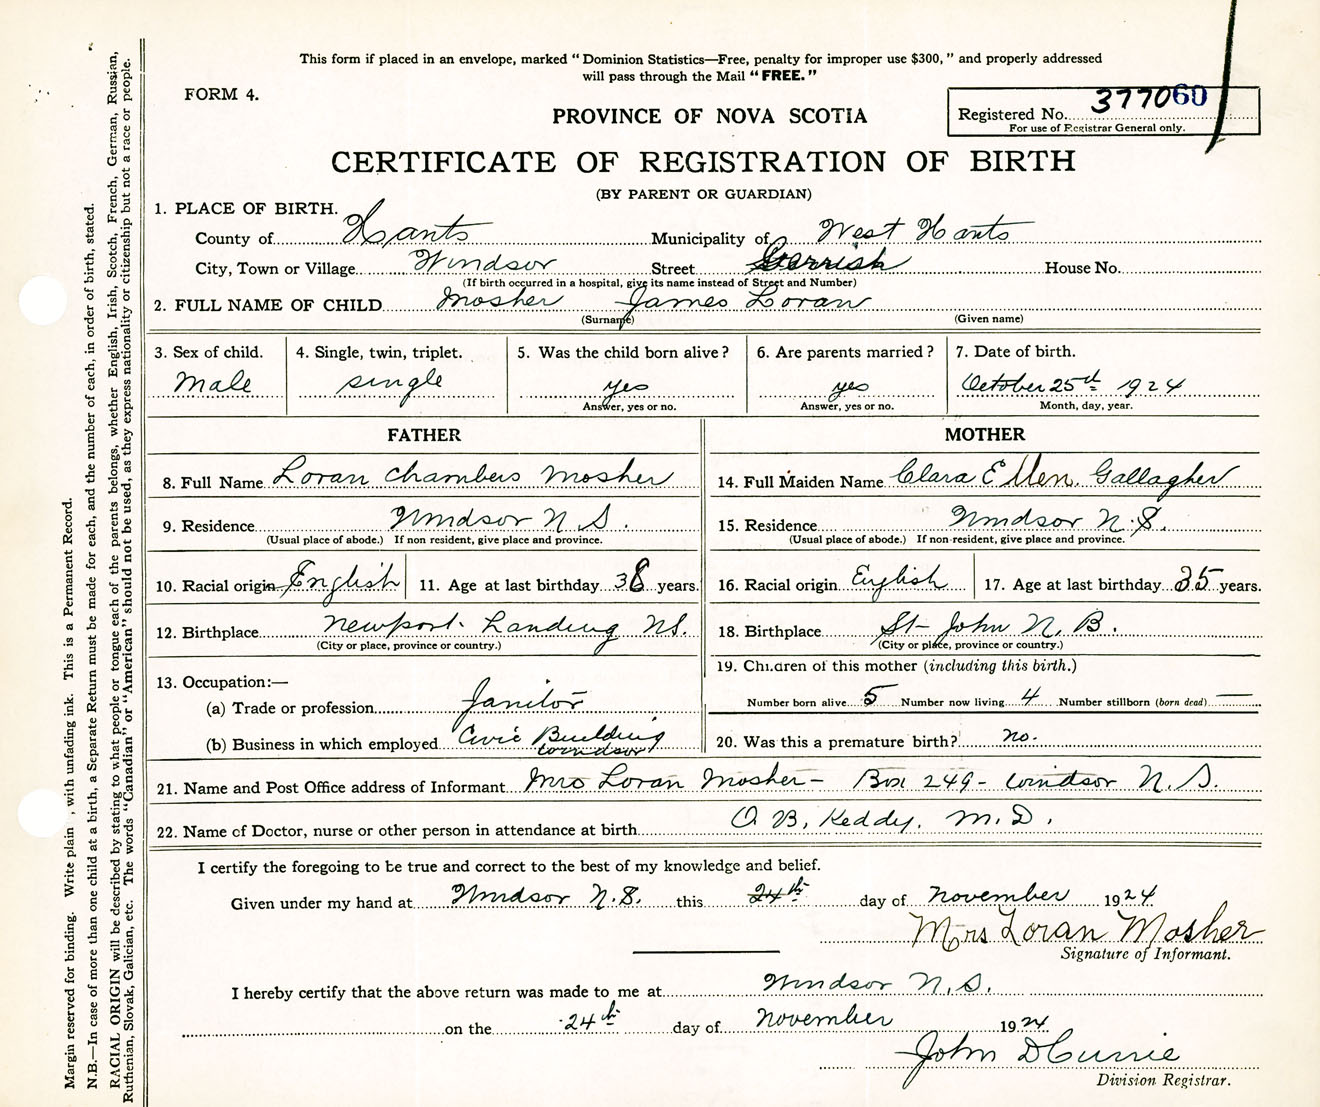 This form if placed in an envelope, marked “Dominion Statistics—Free, penalty for improper use $300,” and properly addressed
will pass through the Mail “FREE.”
FORM 4.
PROVINCE OF NOVA SCOTIA
Registered No. 377060
For use of Registrar General only.
CERTIFICATE OF REGISTRATION OF BIRTH
(BY PARENT OR GUARDIAN)
1. PLACE OF BIRTH.
County of Hants Municipality of West Hants
City, Town or Village Windsor Street Gerrish House No.
(If birth occurred in a hospital, give its name instead of Street and Number)
2. FULL NAME OF CHILD Mosher James Loran
(Surname) (Given name)
3. Sex of child. 4. Single, twin, triplet. 5. Was the child born alive? 6. Are parents married? 7. Date of birth.
Male single yes yes October 25th 1924
Answer, yes or no. Answer, yes or no. Month, day, year.
FATHER MOTHER
8. Full Name Loran Chambers Mosher 14. Full Maiden Name Clara Ellen Gallagher
9. Residence Windsor N.S. 15. Residence Windsor N.S.
(Usual place of abode.) If non resident, give place and province. (Usual place of abode.) If non-resident, give place and province.
10. Racial origin English 11. Age at last birthday 38 years. 16. Racial origin English 17. Age at last birthday 35 years.
12. Birthplace Newport Landing NS. 18. Birthplace St John N.B.
(City or place, province or country.) (City or place, province or country.)
19. Children of this mother (including this birth.)
13. Occupation:—
(a) Trade or profession Janitor Number born alive 5 Number now living 4 Number stillborn (born dead) —
(b) Business in which employed Civic Building Windsor 20. Was this a premature birth? no.
21. Name and Post Office address of Informant Mrs Loran Mosher – Box 249 – Windsor N.S.
22. Name of Doctor, nurse or other person in attendance at birth O B, Keddy, M.D.
I certify the foregoing to be true and correct to the best of my knowledge and belief.
Given under my hand at Windsor N.S. this 24th day of November 1924
Mrs Loran Mosher
Signature of Informant.
I hereby certify that the above return was made to me at Windsor N.S.
on the 24th day of November 1924
John D Currie
Division Registrar.
Margin reserved for binding. Write plain , with unfading ink. This is a Permanent Record.
N.B.—In case of more than one child at a birth, a Separate Return must be made for each, and the number of each, in order of birth, stated.
RACIAL ORIGIN will be described by stating to what people or tongue each of the parents belongs, whether English, Irish, Scotch, French, German, Russian,
Ruthenian, Slovak, Galician, etc. The words “Canadian” or “American” should not be used, as they express nationality or citizenship but not a race or people.